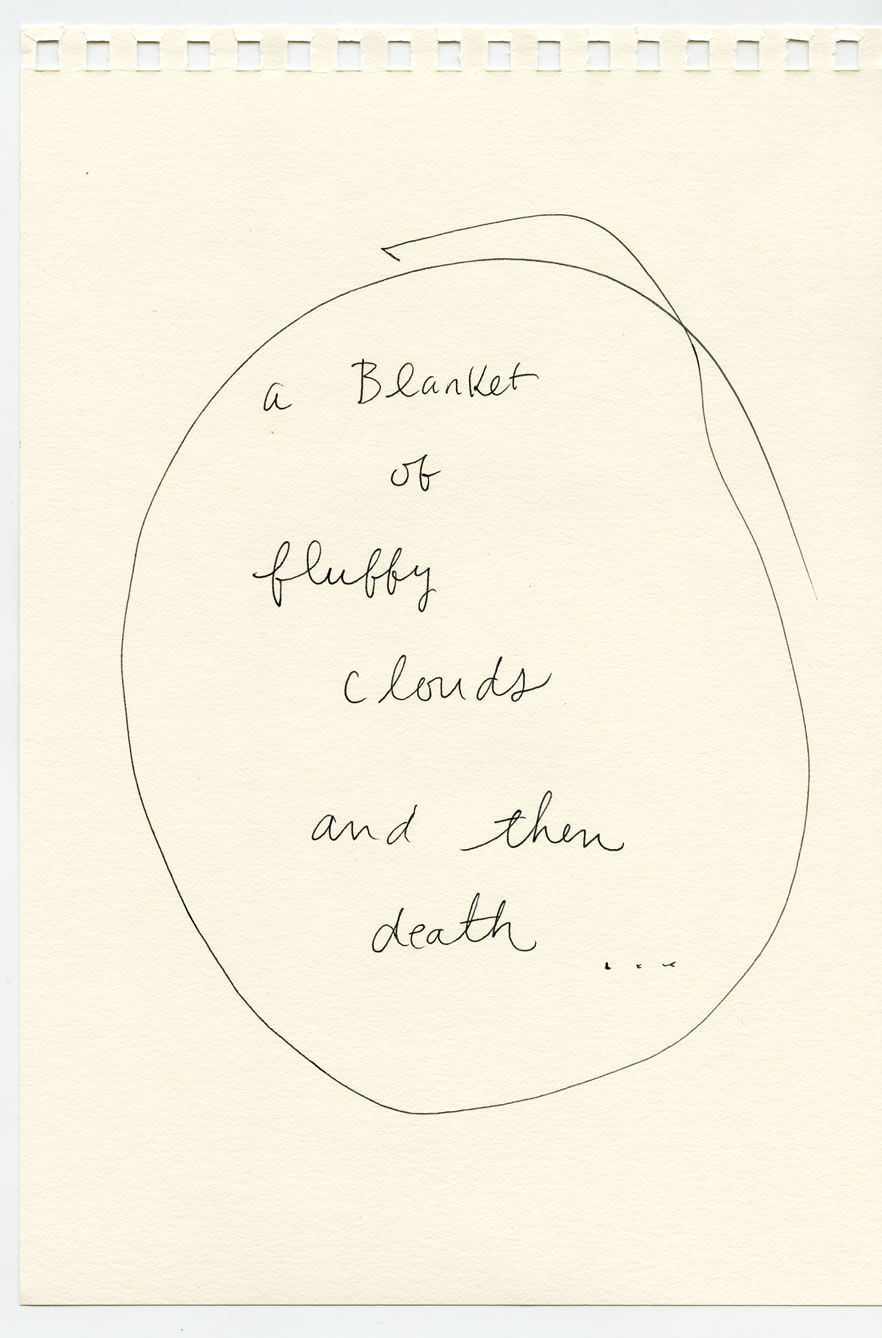 a Blanket
of
fluffy
clouds
and then
death
...